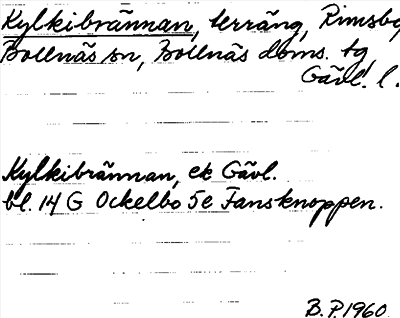 Kylkibrännan, terräng, Rimsbo,
Bollnäs sn, Bollnäs doms. tg,
Gävl. l.
Kylkibrännan, ek Gävl.
bl. 14 G Ockelbo 5e Fansknoppen.
B.P. 1960